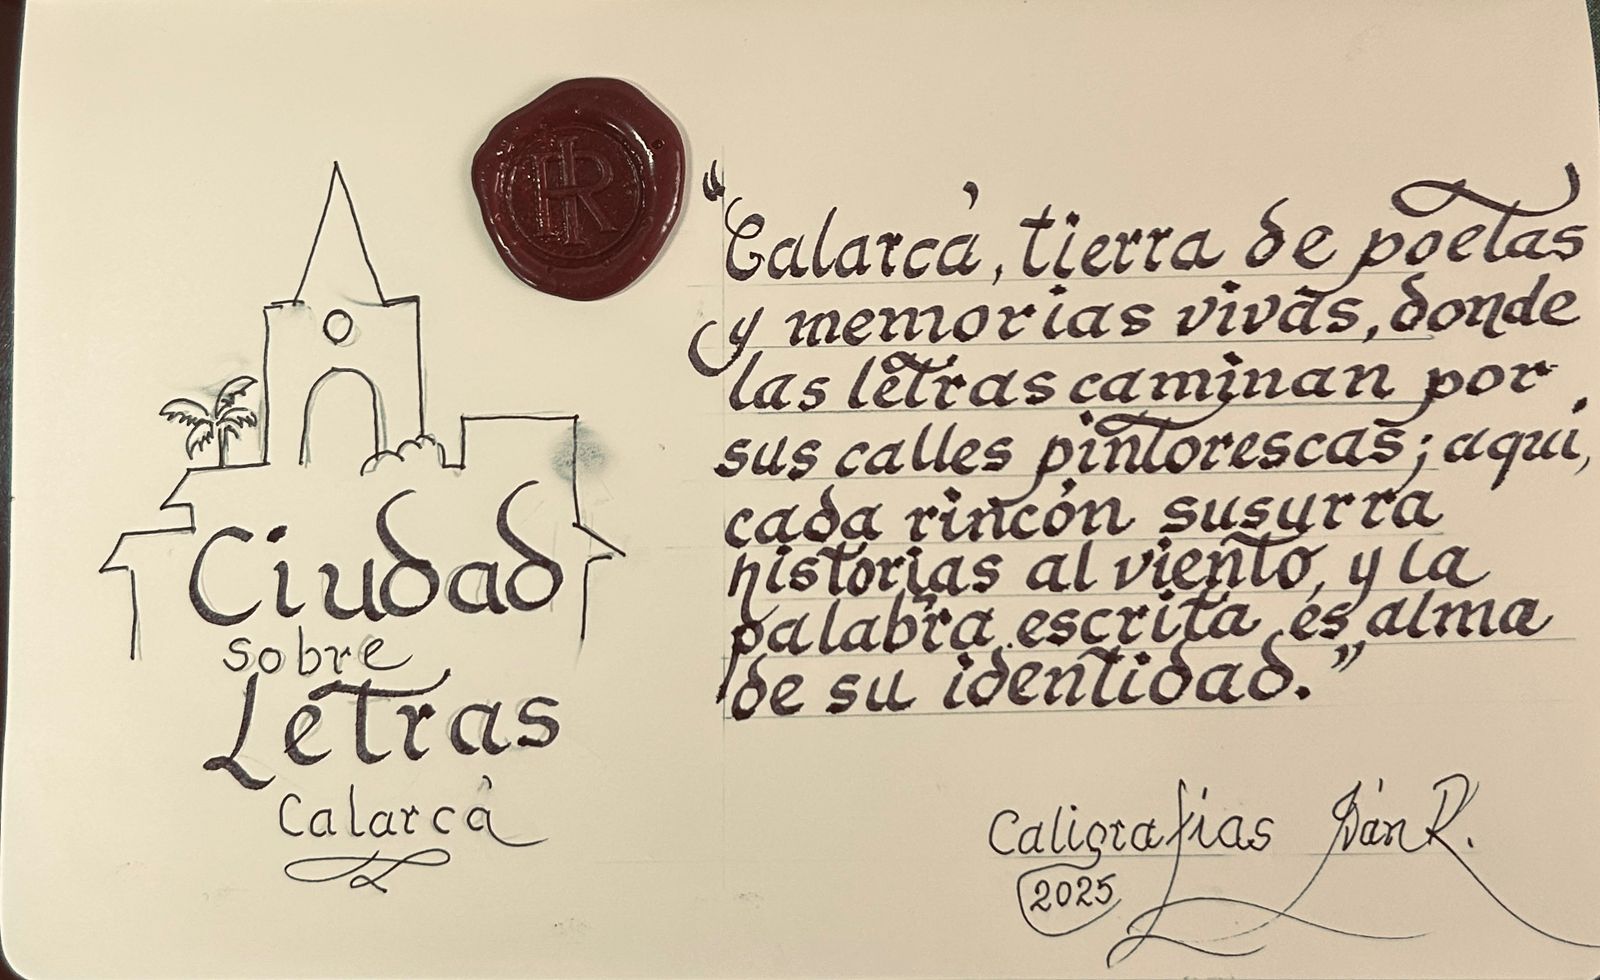 Ciudad
sobre
Letras
Calarcá
"Calarcá, tierra de poetas
y memorias vivas, donde
las letras caminan por
sus calles pintorescas; aquí,
cada rincón susurra
historias al viento, y la
palabra escrita es alma
de su identidad."
Caligrafías Iván R.
2025